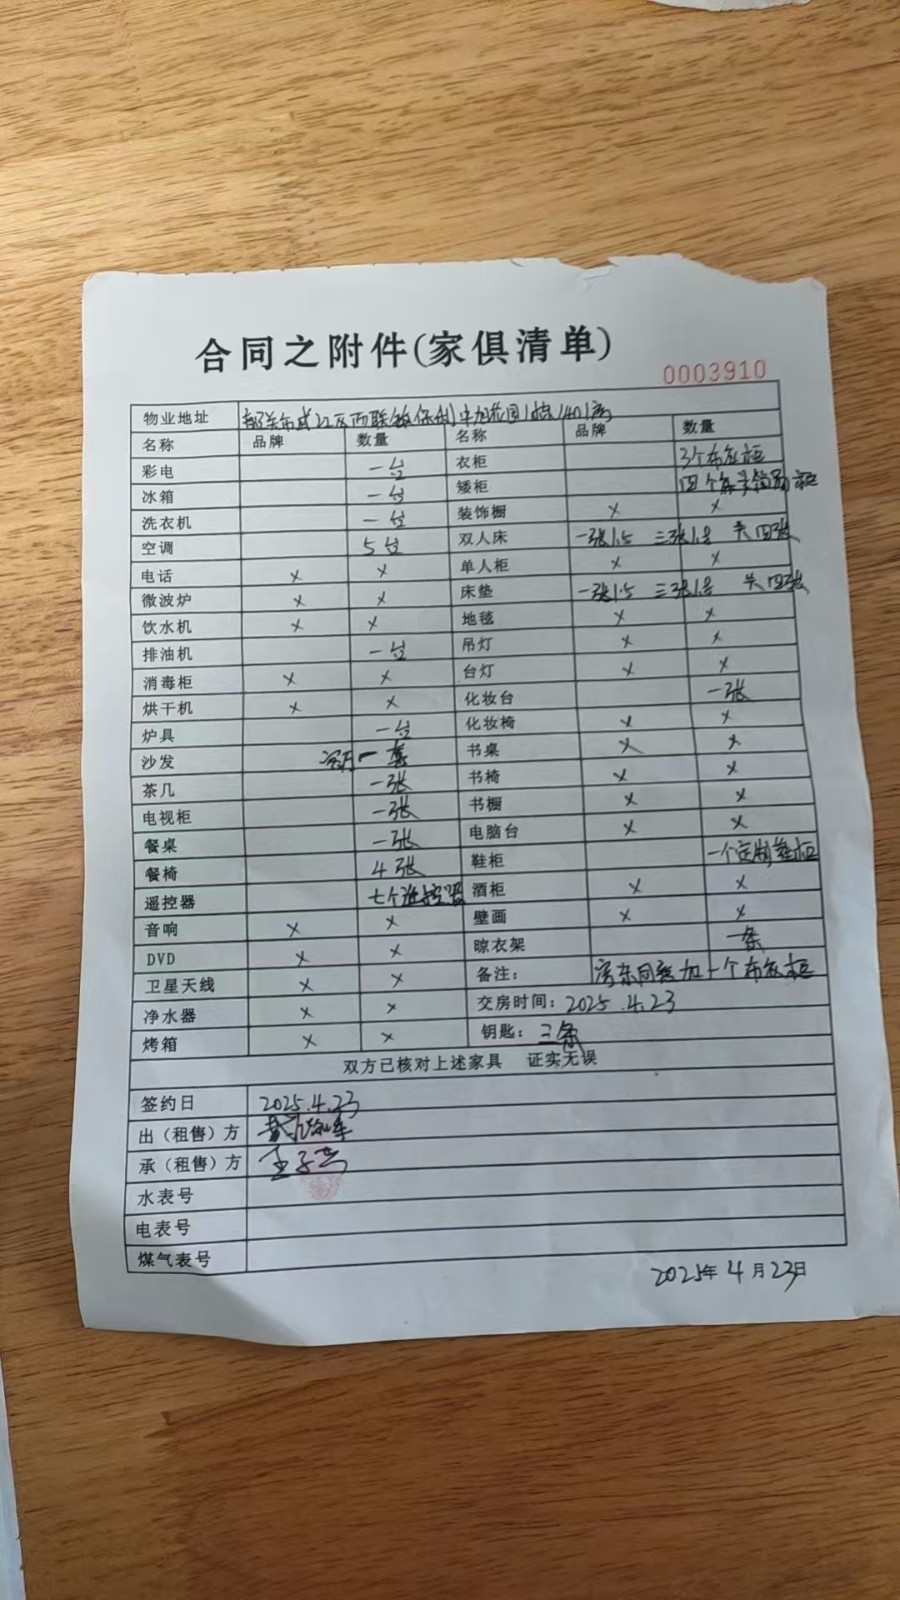 合同之附件(家俱清单)
0003910
物业地址 韶关市武江区西联镇保利中旭花园1栋1401房
名称 品牌 数量 名称 品牌 数量
彩电 一台 衣柜 3个布衣柜
冰箱 一台 矮柜 四个床头简易柜
洗衣机 一台 装饰橱 × ×
空调 5台 双人床 一张1.5 三张1.8 共四张
电话 × × 单人柜 × ×
微波炉 × × 床垫 一张1.5 三张1.8 共四张
饮水机 × × 地毯 × ×
排油机 一台 吊灯 × ×
消毒柜 × × 台灯 × ×
烘干机 × × 化妆台 一张
炉具 一台 化妆椅 × ×
沙发 一套 书桌 × ×
茶几 一张 书椅 × ×
电视柜 一张 书橱 × ×
餐桌 一张 电脑台 × ×
餐椅 4张 鞋柜 一个定制鞋柜
遥控器 七个遥控器 酒柜 × ×
音响 × × 壁画 × ×
DVD × × 晾衣架 一条
卫星天线 × × 备注: 房东同意加一个布衣柜
净水器 × × 交房时间: 2025.4.23
烤箱 × × 钥匙: 三条
双方已核对上述家具 证实无误
签约日 2025.4.23
出（租售）方
承（租售）方
水表号
电表号
煤气表号
2025年4月23日